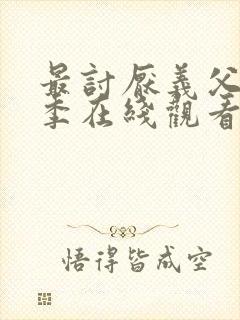 最討厭義父
季在綫觀看
悟得皆成空